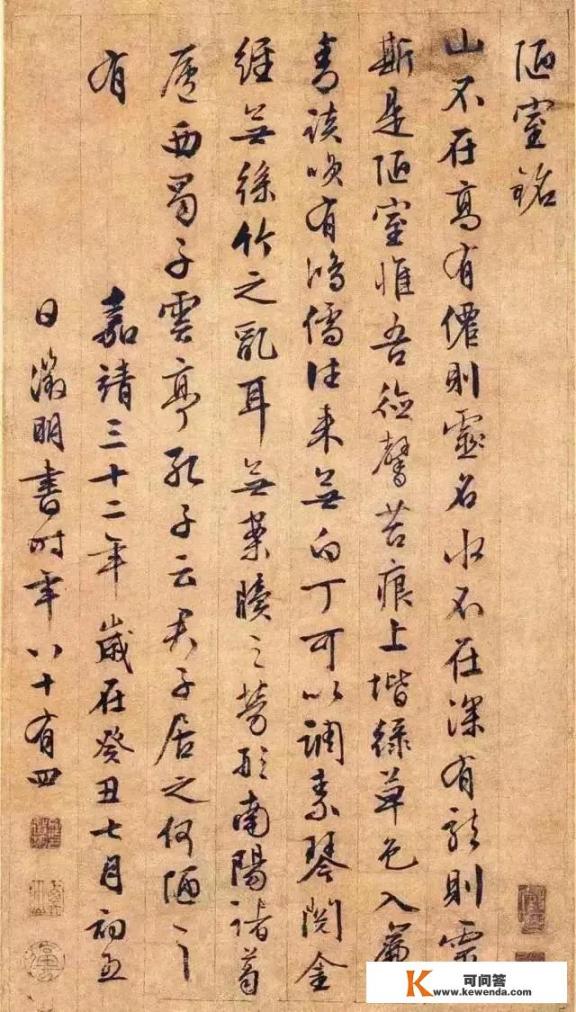 陋室銘
山不在高有僊則靈名水不在深有龍則靈
斯是陋室惟吾德馨苔痕上堦緑草色入簾
青談咲有鴻儒往來無白丁可以調素琴閱金
經無絲竹之亂耳無案牘之勞形南陽諸葛
廬西蜀子雲亭孔子云君子居之何陋之
有 嘉靖三十二年歲在癸丑七月初五
日徵明書時年八十有四
K 可问答
www.kewenda.com